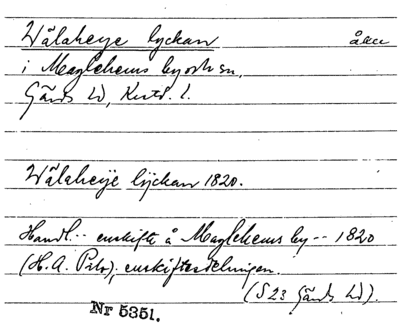 Wålaheye lyckan åker
i Maglehems by och sn,
Gärds hd, Krstd. l.
Wålaheÿe lÿckan 1820.
Handl. - enskifte å Maglehems by -- 1820
(H. A. Pilo); enskiftesdelningen.
(S 23 Gärds hd).
Nr 5351.